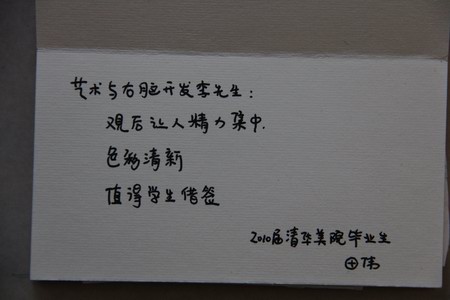 艺术与右脑开发李先生:
观后让人精力集中.
色彩清新
值得学生借鉴
2010届清华美院毕业生
田伟